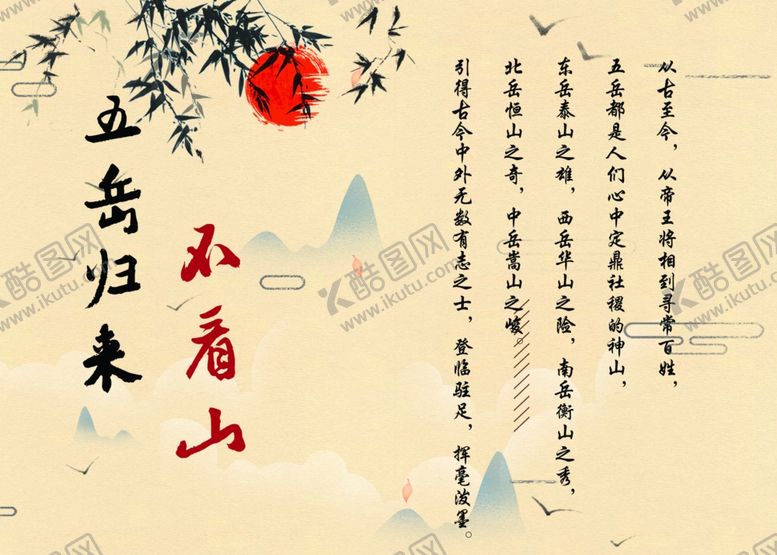 五岳归来
不看山
从古至今，从帝王将相到寻常百姓，
五岳都是人们心中定鼎社稷的神山，
东岳泰山之雄，西岳华山之险，南岳衡山之秀，
北岳恒山之奇，中岳嵩山之峻。
引得古今中外无数有志之士，登临驻足，挥毫泼墨。
酷图网
www.ikutu.com